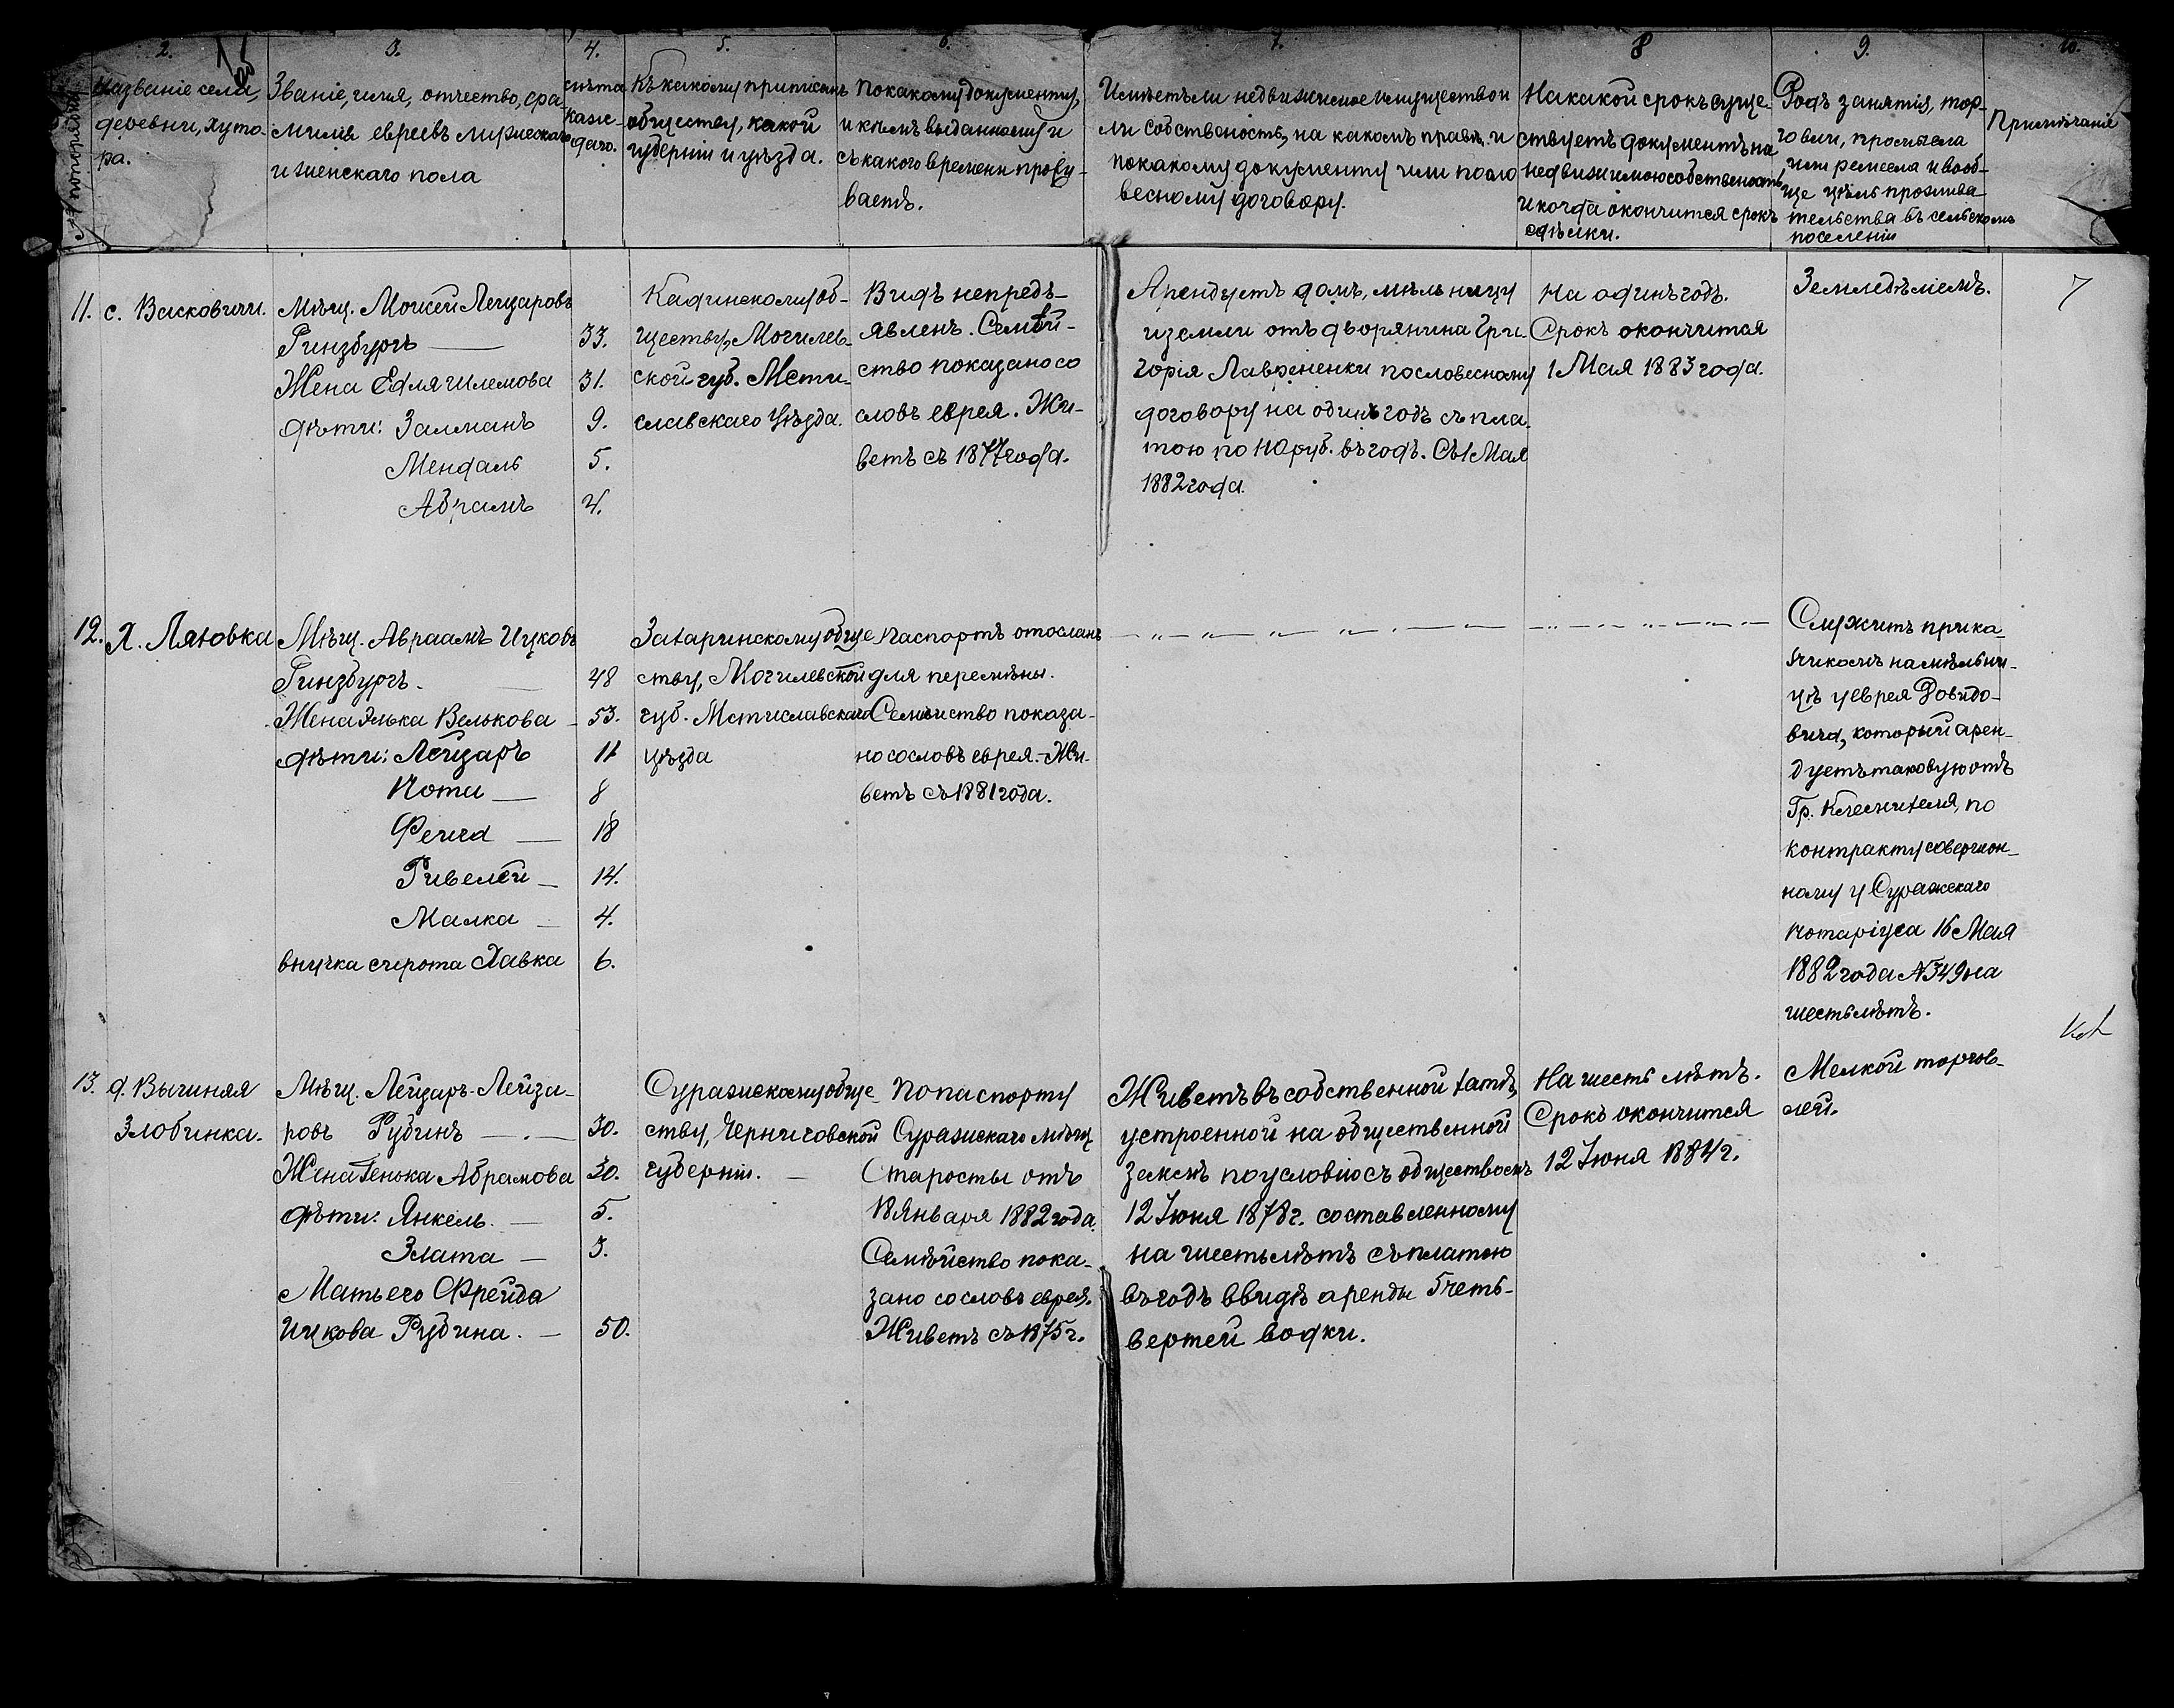 2.
3.
4.
5.
6.
7.
8
9.
10.
№ по порядку
Названіе села,
деревни, хуто-
ра.
Званіе, имя, отчество, фа-
милія евреевъ мужескаго
и женскаго пола
Къ какому приписанъ
обществу, какой
губерніи и уѣзда.
По какому документу,
и кѣмъ выданному и
съ какого времени прожи-
ваетъ.
Имѣетъ ли недвижимое имущество и
ли собственость, на какомъ правѣ, и
по какому документу или по сло
весному договору.
На какой срокъ суще-
ствуетъ документъ на
недвижимою собственость
и когда окончится срокъ
сдѣлки.
Родъ занятія, тор-
говли, промысла
или ремесла и вооб-
ще цѣль прожива-
тельства въ сельскомъ
поселеніи
Примѣчаніе
11.
с. Васковичи.
Мѣщ. Мовсей Лейзаровъ
Гинзбургъ
33.
Жена Едля Шлемова
31.
дѣти: Залманъ
9.
Мендаль
5.
Абрамъ
4.
Кадинскому об-
ществу, Могилев-
ской губ. Мсти-
славскаго Уѣзда.
Видъ непредъ-
явленъ. Семѣй-
ство показано со
словъ еврея. Жи-
ветъ съ 1877 года.
Арендуетъ домъ, мѣльницу
и земли отъ дворянина Гри-
горія Лавриненки по словесному
договору на одинъ годъ съ пла-
тою по 110 руб. въ годъ. Съ 1 Мая
1882 года.
На одинъ годъ.
Срокъ окончится
1 Мая 1883 года.
Земледѣліемъ.
12.
Х. Лятовка
Мѣщ. Авраамъ Ицковъ
Гинзбургъ.
48
Жена Элька Велькова
53.
дѣти: Лейзаръ
11
8
18
14.
Малка
4.
внучка сирота Хавка
6.
Захаринскому обще
ству, Могилевской
губ. Мстиславскаго
Уѣзда
Паспортъ отосланъ
для перемѣны.
Семийство показа-
но со словъ еврея. Жи-
ветъ съ 1881 года.
Служитъ прика-
щикомъ на мѣльни-
цѣ у еврея Довидо-
вича, который арен-
дуетъ таковую отъ
Гр. по
контракту совершон-
ному у Суражскаго
Нотаріуса 16 Мая
1882 года № 349 на
шесть лѣтъ.
13.
д. Вычиняя
Злобинка.
Мѣщ. Лейзаръ Лейза-
ровъ Рубинъ
30.
Жена Генька Абрамова
30.
дѣти: Янкель.
5.
Злата
3.
Мать его Фрейда
Ицкова Рубина.
50.
Суражскому обще
ству, Черниговской
губерніи.
По паспорту
Суражскаго мѣщ
Старосты отъ
18 Января 1882 года.
Семѣйство пока-
зано со словъ еврея.
Живетъ съ 1875 г.
Живетъ въ собственной хатѣ,
устроенной на общественной
землѣ по условію съ обществомъ
12 Іюня 1878 г. составленному
на шесть лѣтъ съ платою
въ годъ ввидѣ аренды 5 четь-
вертей водки.
На шесть лѣтъ.
Срокъ окончится
12 Іюня 1884 г.
Мелкой торгов-
лей.